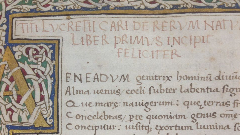 TITI LUCRETII CARI DE RERUM NATU
LIBER PRIMUS INCIPIT
FELICITER
AENEADUM genitrix hominũ divũ
Alma venus: coeli subter labentia sign
Que mare navigerum: que terras fr
Concelebras: per quoniam genus omne
Concipitur: visitq; exortum lumina